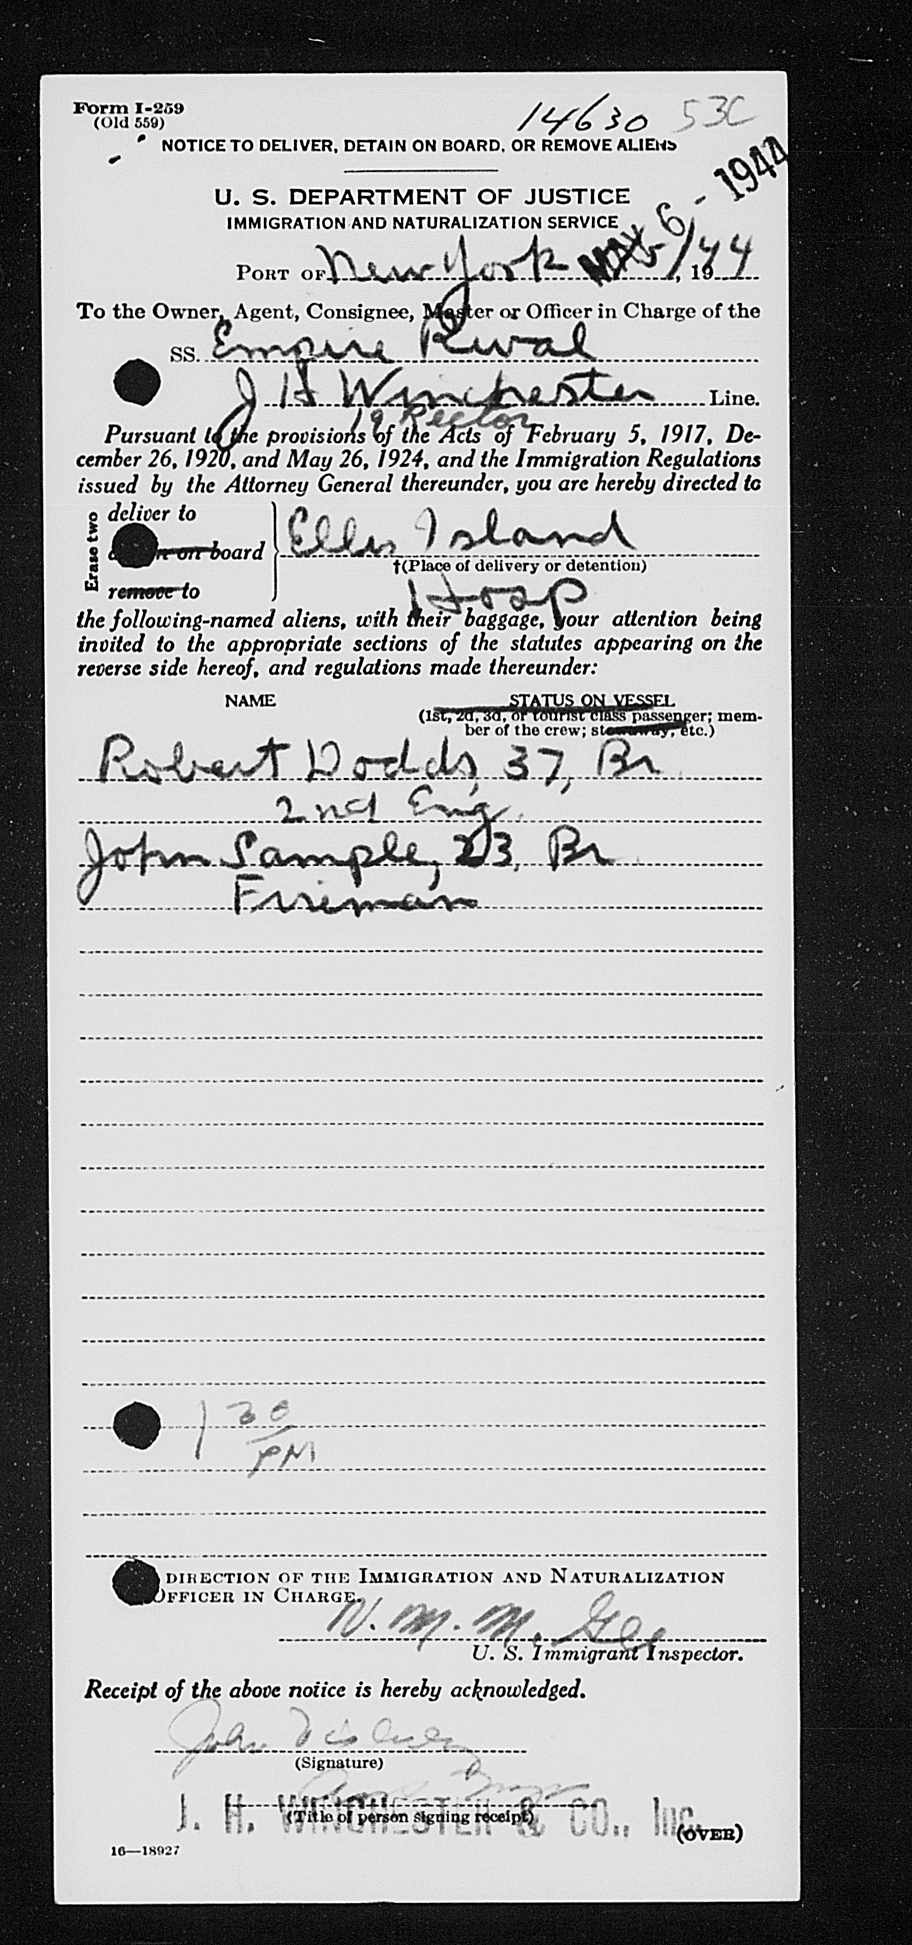 Form I-259
(Old 559)
14630 53C
NOTICE TO DELIVER, DETAIN ON BOARD, OR REMOVE ALIENS
MAY 6 - 1944
U. S. DEPARTMENT OF JUSTICE
IMMIGRATION AND NATURALIZATION SERVICE
PORT OF New York 5/1, 1944
To the Owner, Agent, Consignee, Master or Officer in Charge of the
SS. Empire Rival
J H Winchester Line.
19 Rector
Pursuant to the provisions of the Acts of February 5, 1917, De-
cember 26, 1920, and May 26, 1924, and the Immigration Regulations
issued by the Attorney General thereunder, you are hereby directed to
Erase two
deliver to
on board Ellis Island
†(Place of delivery or detention)
remove to Hosp
the following-named aliens, with their baggage, your attention being
invited to the appropriate sections of the statutes appearing on the
reverse side hereof, and regulations made thereunder:
NAME STATUS ON VESSEL
(1st, 2d, 3d, or tourist class passenger; mem-
ber of the crew; stowaway, etc.)
Robert Dodds, 37, Br
2nd Eng.
John Sample, 23, Br
Fireman
1 30
PM
DIRECTION OF THE IMMIGRATION AND NATURALIZATION
OFFICER IN CHARGE.
N. M. M. Gee
U. S. Immigrant Inspector.
Receipt of the above notice is hereby acknowledged.
John
(Signature)
J. H. WINCHESTER & CO., Inc.
(Title of person signing receipt)
(OVER)
16—18927